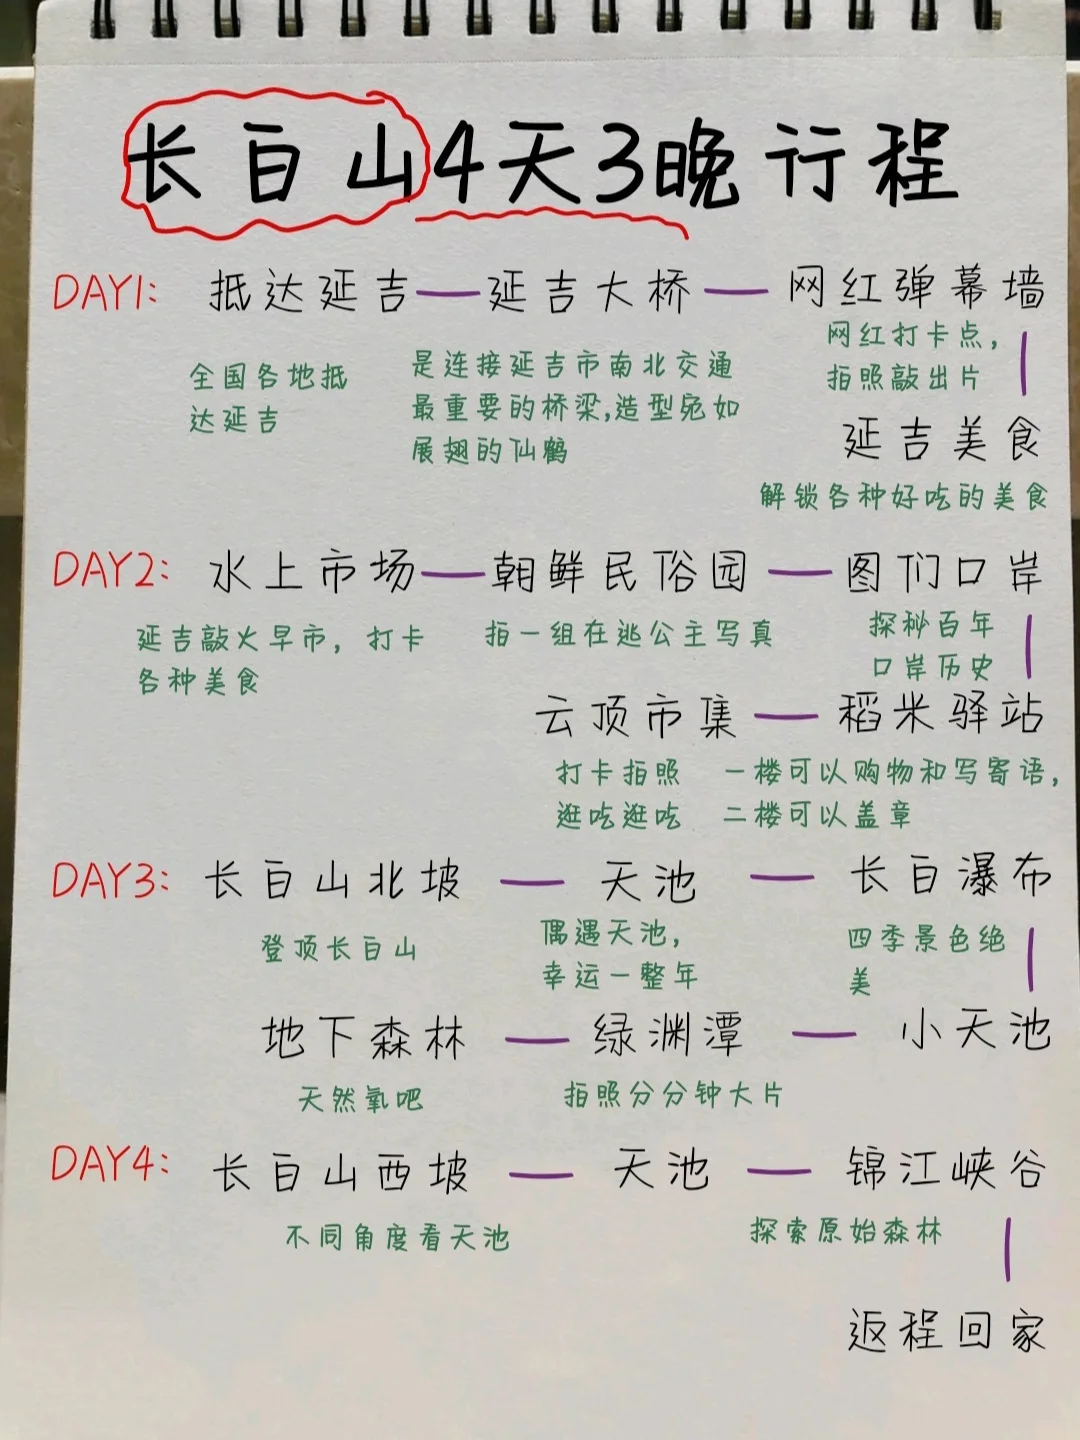 长白山4天3晚行程
DAY1: 抵达延吉—延吉大桥—网红弹幕墙
全国各地抵
达延吉
是连接延吉市南北交通
最重要的桥梁,造型宛如
展翅的仙鹤
网红打卡点,
拍照敲出片
延吉美食
解锁各种好吃的美食
DAY2: 水上市场—朝鲜民俗园—图们口岸
延吉敲火早市, 打卡
各种美食
拍一组在逃公主写真
探秘百年
口岸历史
云顶市集—稻米驿站
打卡拍照
逛吃逛吃
一楼可以购物和写寄语,
二楼可以盖章
DAY3: 长白山北坡—天池—长白瀑布
登顶长白山
偶遇天池,
幸运一整年
四季景色绝
美
地下森林—绿渊潭—小天池
天然氧吧
拍照分分钟大片
DAY4: 长白山西坡—天池—锦江峡谷
不同角度看天池
探索原始森林
返程回家